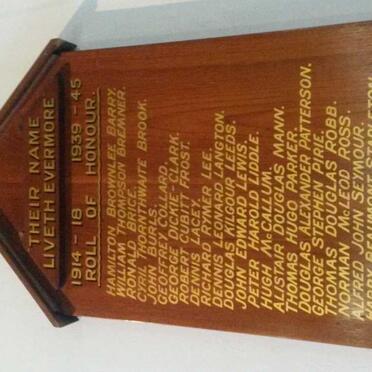 THEIR NAME
LIVETH EVERMORE
1914 - 18 1939 - 45
ROLL OF HONOUR.
HAMILTON BROMLEY BARRY.
WILLIAM THOMPSON BREMNER.
RONALD BRICE.
CYRIL BOTHWAITE BROOK.
JOHN BURLS.
GEOFFREY COLLARD.
GEORGE DICKIE-CLARK.
ROBERT CUBITT FROST.
DENIS LACEY.
RICHARD RYMER LEE.
DENNIS LEONARD LANGTON.
DOUGLAS KILGOUR LEEDS.
JOHN EDWARD LEWIS.
PETER HAROLD LIDDLE.
HUGH McCALLUM.
ALISTAIR DOUGLAS MANN.
THOMAS HUGO PARKER.
DOUGLAS ALEXANDER PATTERSON.
GEORGE STEPHEN PIRIE.
THOMAS DOUGLAS ROBB.
NORMAN McLEOD ROSS.
ALFRED JOHN SEYMOUR.